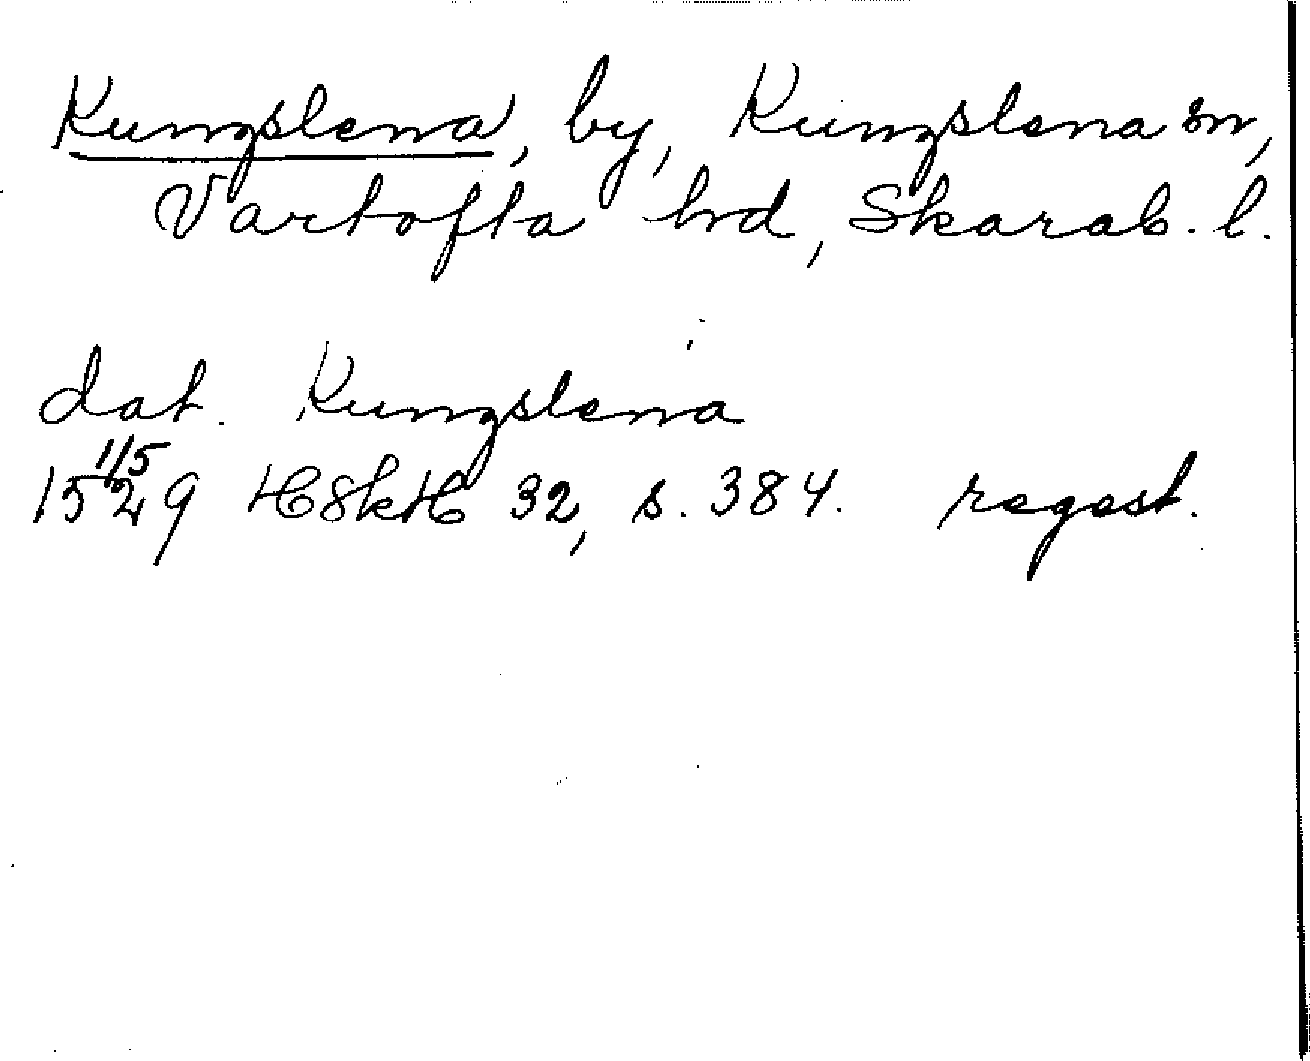 Kungslena, by, Kungslena sn,
Vartofta hd, Skarab. l.
dat. Kungslena
1/5
1529 HSkH 32, s. 384. regest.